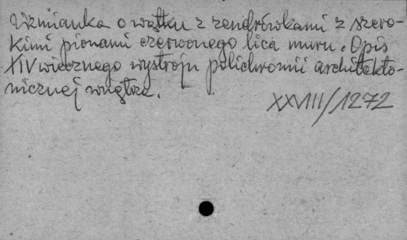 Wzmianka o wątku z zendrówkami z szero-
kimi pionami czerwonego lica muru. Opis
XIV wiecznego wystroju polichromii architekto-
nicznej wnętrza.
XXVIII/1272